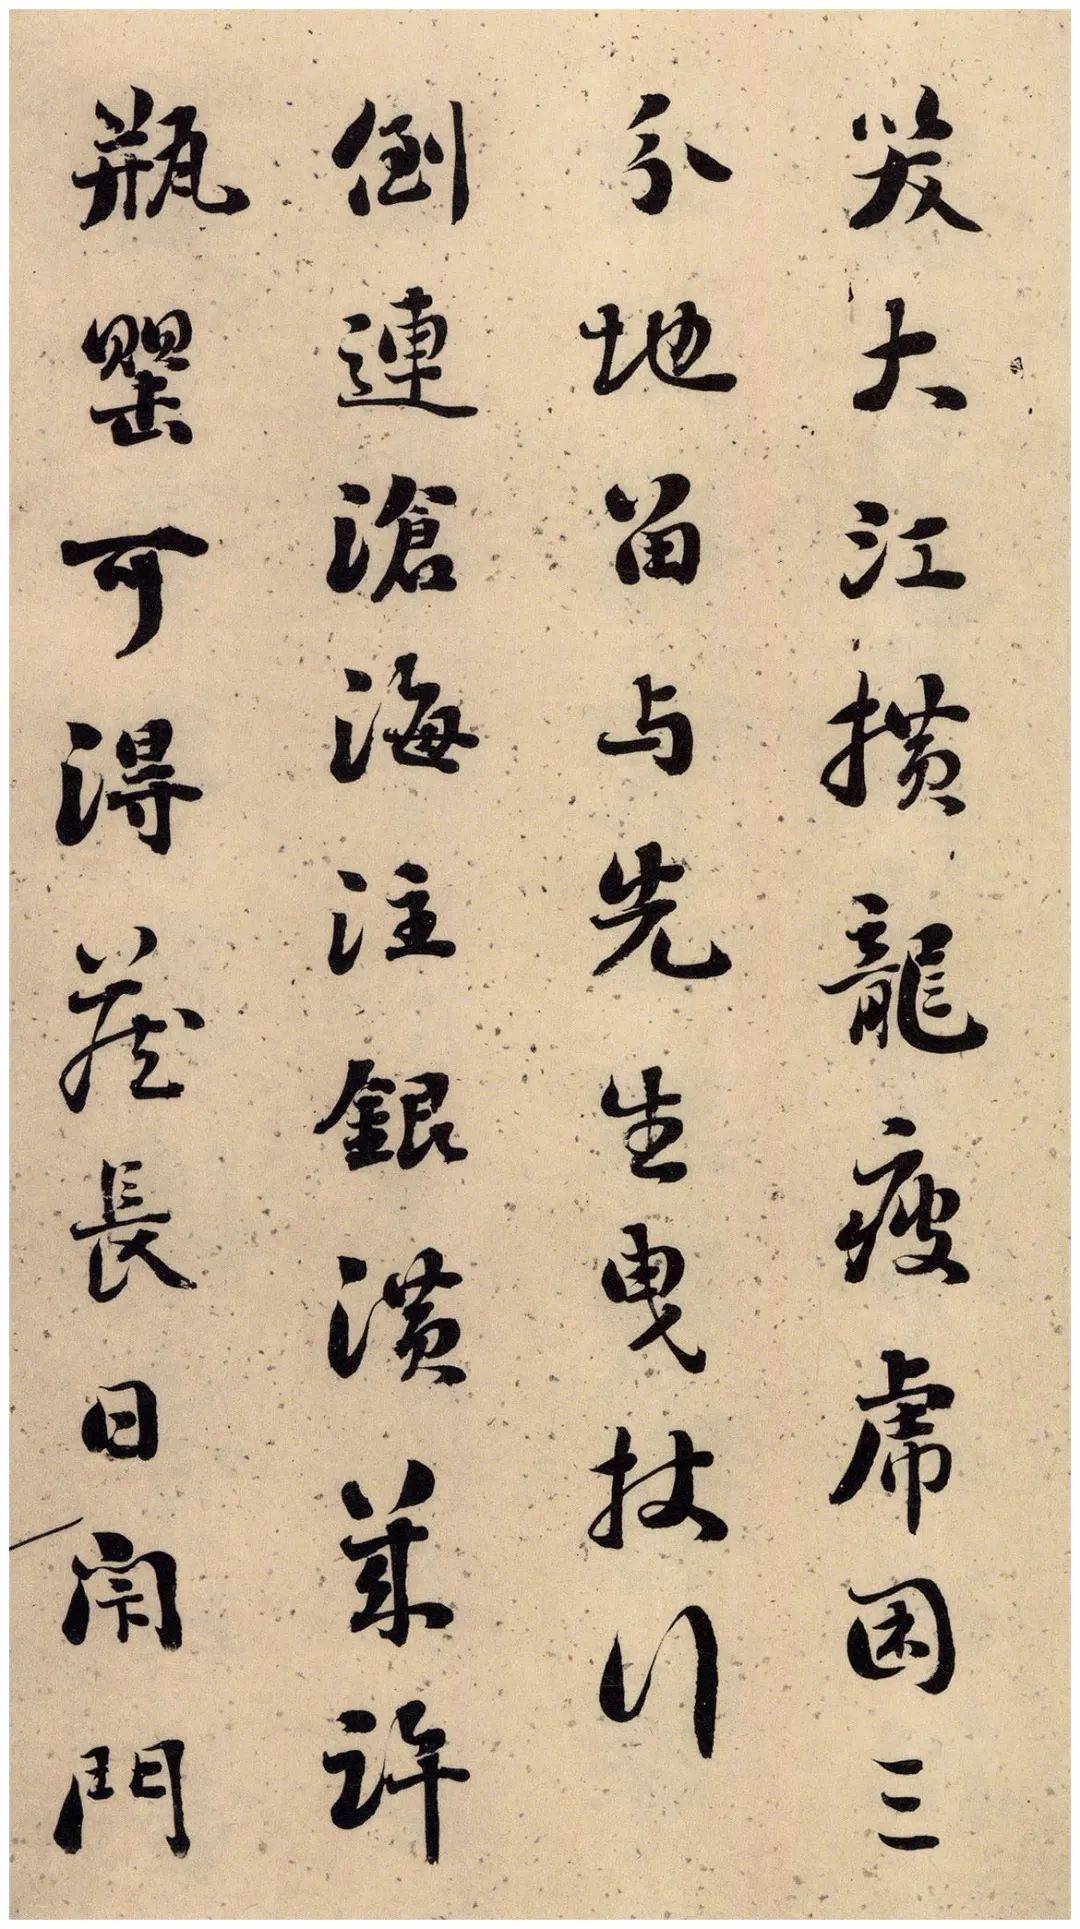 发大江横龍瘦虎困三
分地留与先生曳杖行
倒連滄海注銀潢第許
瓶罌可得藏長日閉門